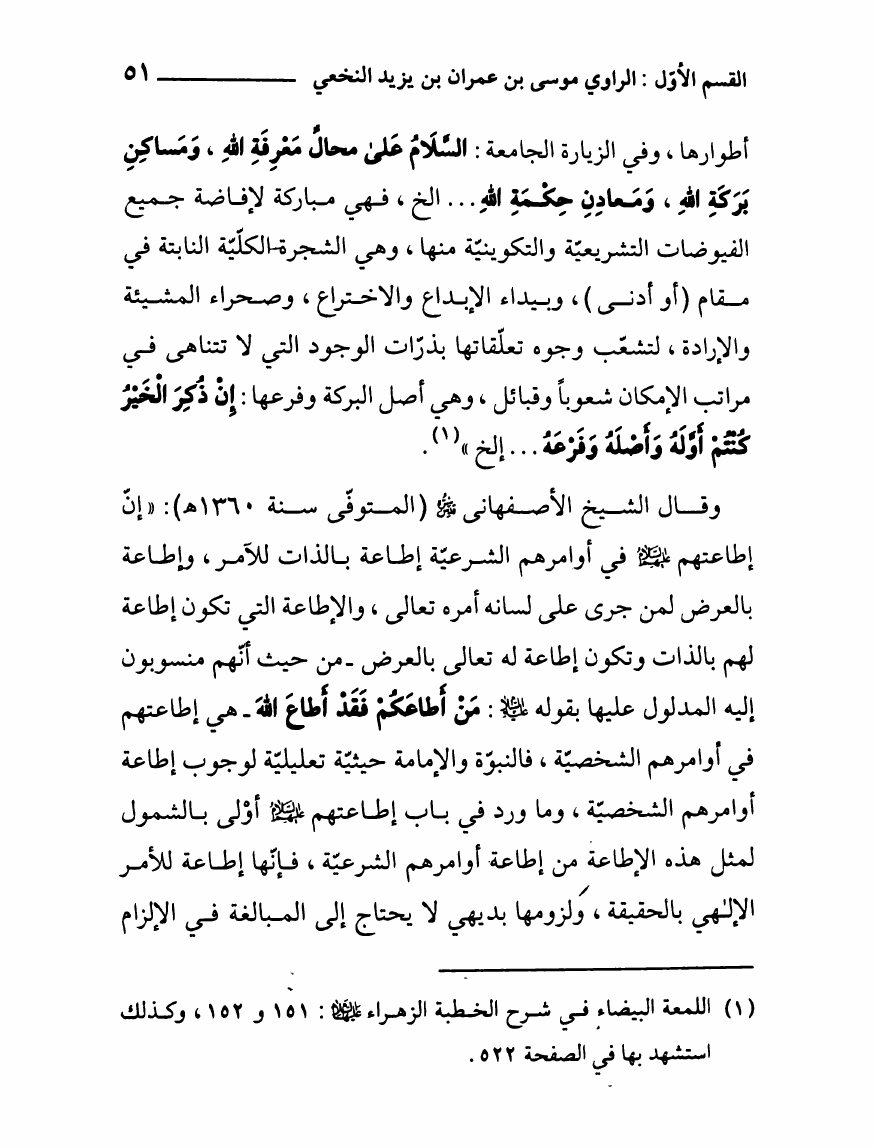 القسم الأوّل : الراوي موسى بن عمران بن يزيد النخعي ـــــــــــــ ٥١
أطوارها ، وفي الزيارة الجامعة : السَّلَامُ عَلىٰ محالِّ مَعْرِفَةِ اللهِ ، وَمَساكِنِ
بَرَكَةِ اللهِ ، وَمَعادِنِ حِكْمَةِ اللهِ ... الخ ، فهي مباركة لإفاضة جميع
الفيوضات التشريعيّة والتكوينيّة منها ، وهي الشجرة الكلّيّة النابتة في
مقام (أو أدنى) ، وبيداء الإبداع والاختراع ، وصحراء المشيئة
والإرادة ، لتشعّب وجوه تعلّقاتها بذرّات الوجود التي لا تتناهى في
مراتب الإمكان شعوباً وقبائل ، وهي أصل البركة وفرعها : إِنْ ذُكِرَ الْخَيْرُ
كُنْتُمْ أَوَّلَهُ وَأَصْلَهُ وَفَرْعَهُ ... إلخ »(١) .
وقال الشيخ الأصفهاني ﷺ (المتوفّى سنة ١٣٦٠هـ) : « إنّ
إطاعتهم عليهم السلام في أوامرهم الشرعيّة إطاعة بالذات للآمر ، وإطاعة
بالعرض لمن جرى على لسانه أمره تعالى ، والإطاعة التي تكون إطاعة
لهم بالذات وتكون إطاعة له تعالى بالعرض ـ من حيث أنّهم منسوبون
إليه المدلول عليها بقوله عليه السلام : مَنْ أَطاعَكُمْ فَقَدْ أَطاعَ اللهَ ـ هي إطاعتهم
في أوامرهم الشخصيّة ، فالنبوّة والإمامة حيثيّة تعليليّة لوجوب إطاعة
أوامرهم الشخصيّة ، وما ورد في باب إطاعتهم عليهم السلام أوْلى بالشمول
لمثل هذه الإطاعة من إطاعة أوامرهم الشرعيّة ، فإنّها إطاعة للأمر
الإلٰهي بالحقيقة ، ولزومها بديهي لا يحتاج إلى المبالغة في الإلزام
(١) اللمعة البيضاء في شرح الخطبة الزهراء عليها السلام : ١٥١ و ١٥٢ ، وكذلك
استشهد بها في الصفحة ٥٢٢ .